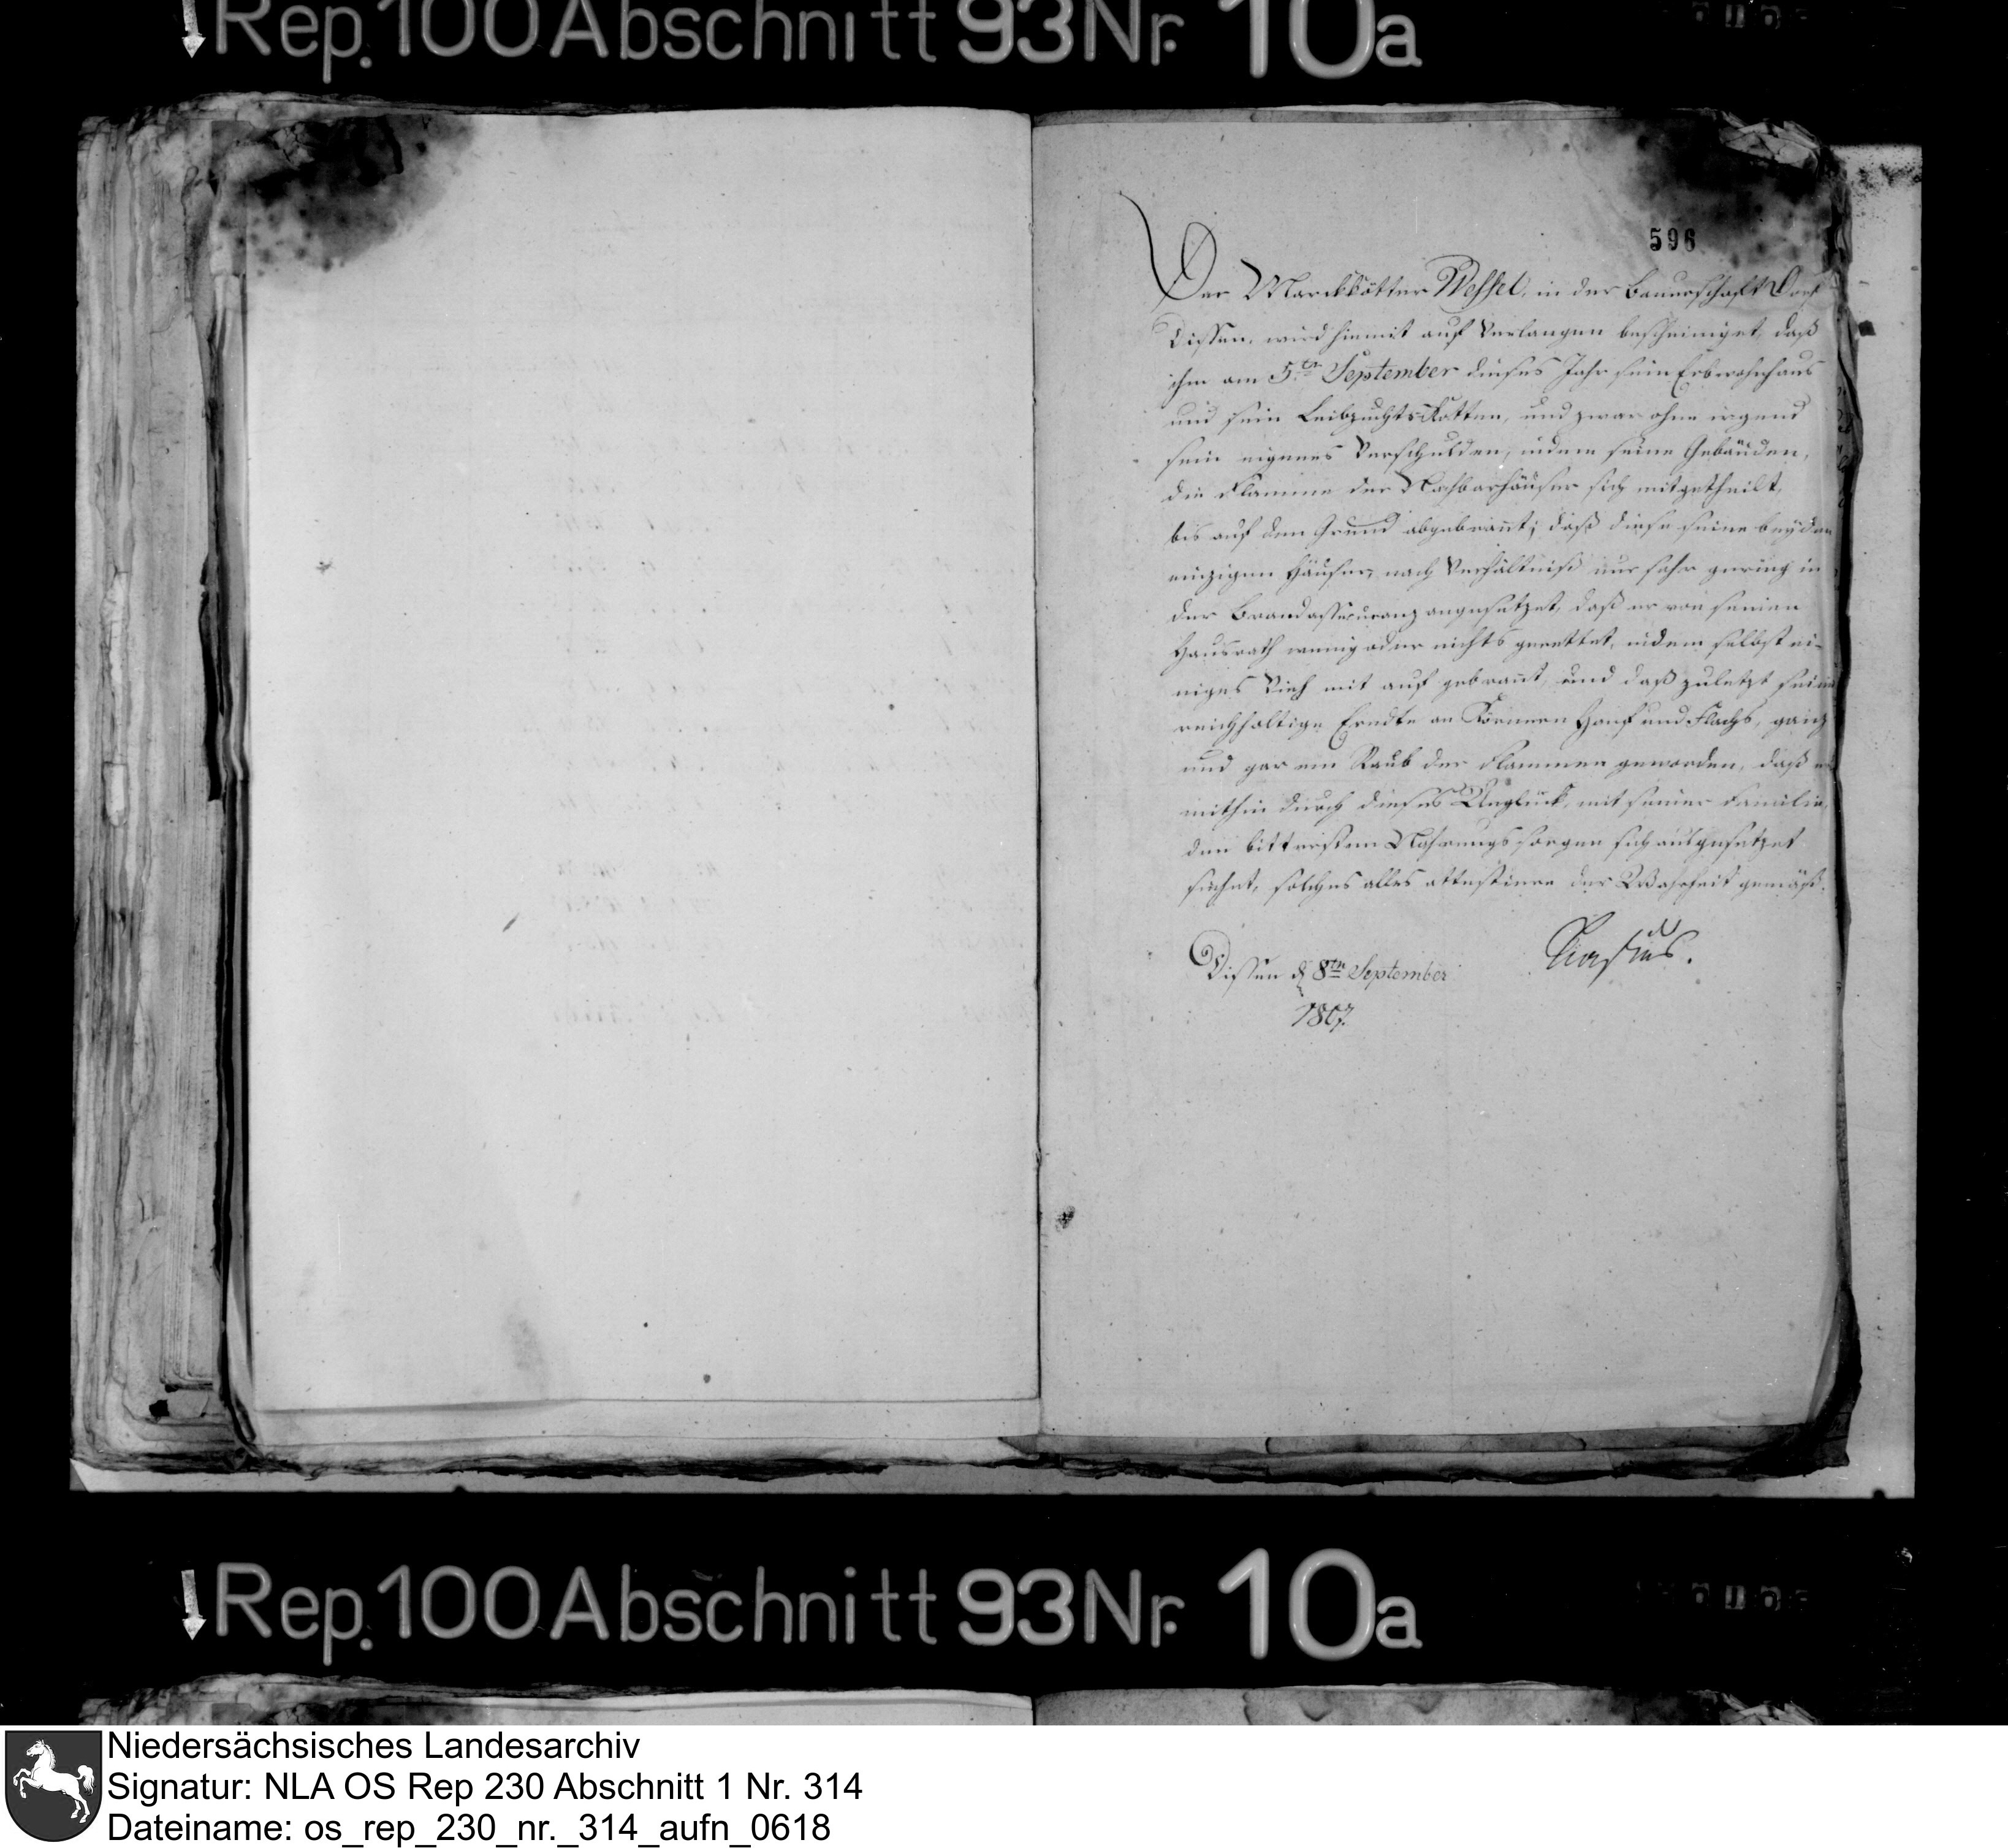 Rep. 100 Abschnitt 93 Nr. 10a
596
Der Marckkötter Wessel, in der Bauerschaft Dorf
Dissen, wird hiemit auf Verlangen bescheiniget, daß
ihm am 5ten September dieses Jahr sein Erbwohnhaus
und sein Leibzuchts Kotten, und zwar ohne irgend
sein eigenes Verschulden, indem seine Gebäuden,
die Flamme der Nachbarhäuser sich mitgetheilt,
bis auf den Grund abgebrannt; daß diese seine beyden
einzigen Häuser, nach Verhältniß nur sehr gering in
der Brandassecuranz angesetzet, daß er von seinen
Hausrath wenig oder nichts gerettet, indem selbst ei-
niges Vieh mit auf gebrannt, und daß zuletzt seine
reichhaltige Erndte an Körnern Hanf und Flachs, ganz
und gar ein Raub der Flammen geworden, daß er
mithin durch dieses Unglück, mit seiner Familie,
den bittersten Nahrungs sorgen sich ausgesetzet
siehet, solches alles attestiere der Wahrheit gemäß.
Dissen d 8ten September
1807.
Rep. 100 Abschnitt 93 Nr. 10a
Niedersächsisches Landesarchiv
Signatur: NLA OS Rep 230 Abschnitt 1 Nr. 314
Dateiname: os_rep_230_nr._314_aufn_0618